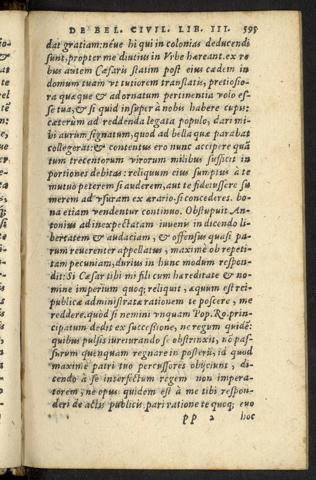 DE BEL. CIVIL. LIB. III. 595
dat gratiam: néue hi qui in colonias deducendi
sunt, propter me diutius in Vrbe hæreant. ex re
bus autem Cæsaris statim post eius cædem in
domum tuam vt tutiorem translatis, pretiosio-
ra quæque & adornatum pertinentia volo es-
se tua, & si quid insuper à nobis habere cupis:
cæterùm ad reddenda legata populo, dari mi-
hi aurum signatum, quod ad bella quæ parabat
collegerat: & contentus ero nunc accipere quā
tum trecentorum virorum milibus sufficit in
portiones debitas: reliquum eius sumptus à te
mutuò peterem si auderem, aut te fideiussore su
merem ad vsuram ex ærario, si concederes. bo
na etiam vendentur continuo. Obstupuit An-
tonius ad inexpectatam iuuenis in dicendo li-
bertatem & audaciam, & offensus quasi pa-
rum reuerenter appellatus, maximè ob repeti-
tam pecuniam, durius in hunc modum respon-
dit: Si Cæsar tibi mi fili cum hæreditate & no-
mine imperium quoq; reliquit, æquum est rei-
publicæ administratæ rationem te poscere, me
reddere. quòd si nemini vnquam Pop. Ro. prin-
cipatum dedit ex successione, ne regum quidē:
quibus pulsis iureiurando se obstrinxit, nō pas-
surum quenquam regnare in posterū, id quod
maximè patri tuo percussores obijciunt, di-
cendo à se interfectum regem non impera-
torem, ne opus quidem est à me tibi respon-
deri de actis publicis. pari ratione te quoq; euo
pp 2 hoc